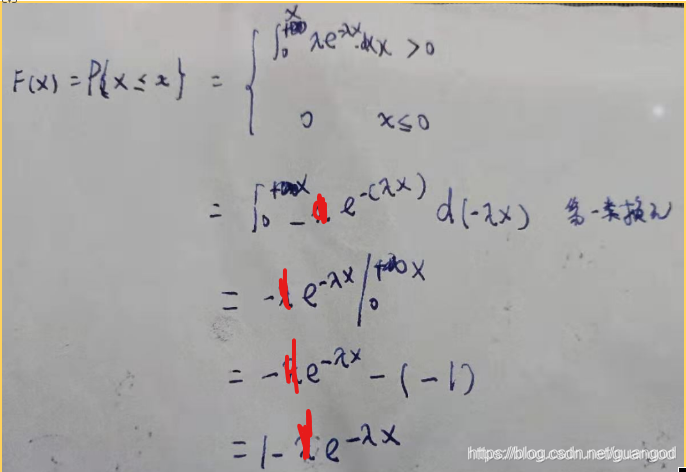 F(x) = P{X ≤ x} = { ∫₀ˣ λe^{-λx} dx x > 0
0 x ≤ 0
= ∫₀ˣ - e^{-(λx)} d(-λx) 第一类换元
= - e^{-λx} |₀ˣ
= - e^{-λx} - (-1)
= 1 - e^{-λx}
https://blog.csdn.net/guangod